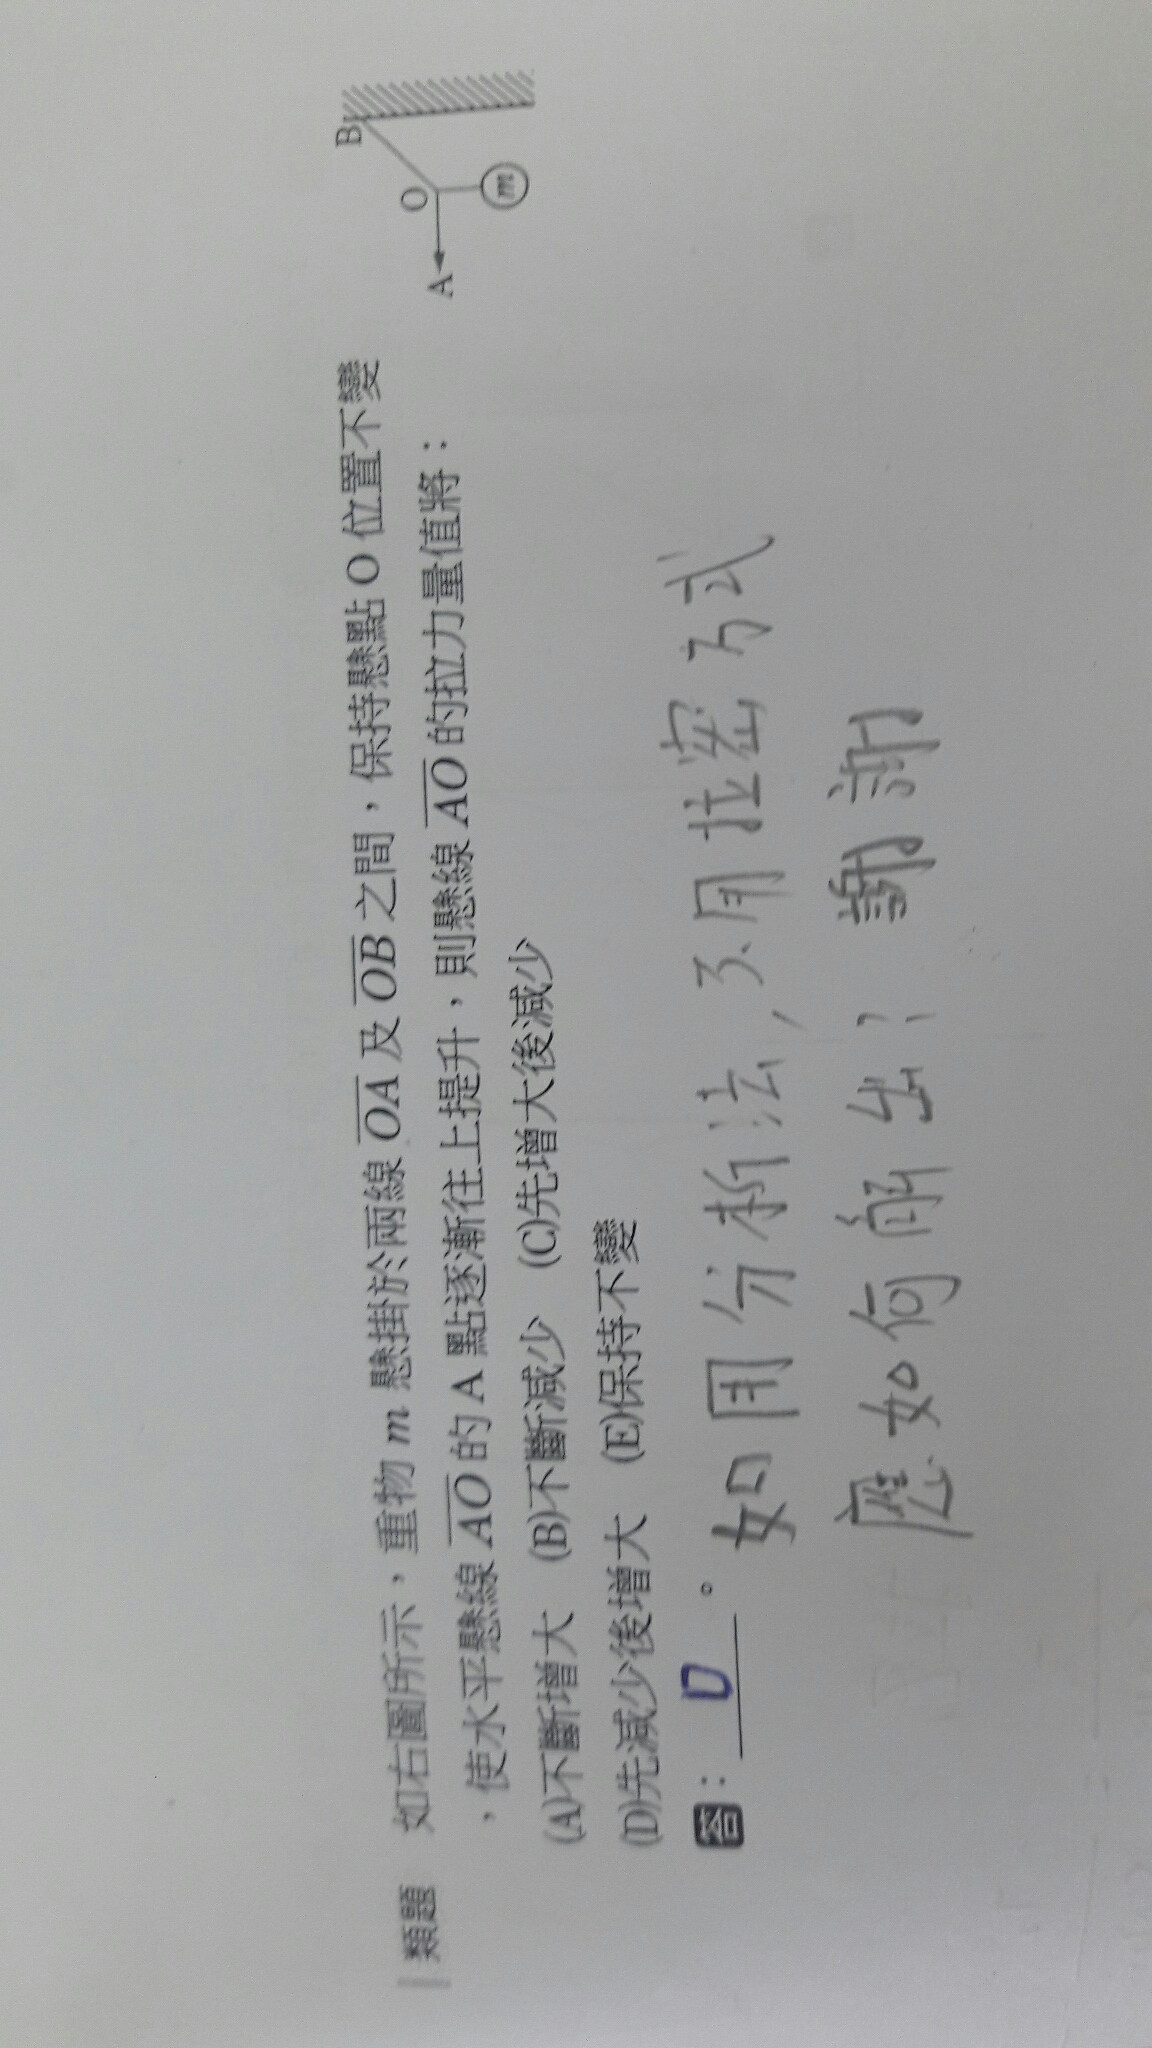 類題 如右圖所示，重物 m 懸掛於兩線 OA 及 OB 之間，保持懸點 O 位置不變
，使水平懸線 AO 的 A 點逐漸往上提升，則懸線 AO 的拉力量值將：
(A)不斷增大 (B)不斷減少 (C)先增大後減少
(D)先減少後增大 (E)保持不變
答： D 。
如用分析法，不用拉密方式
應如何解出？謝謝
B
O
A
m